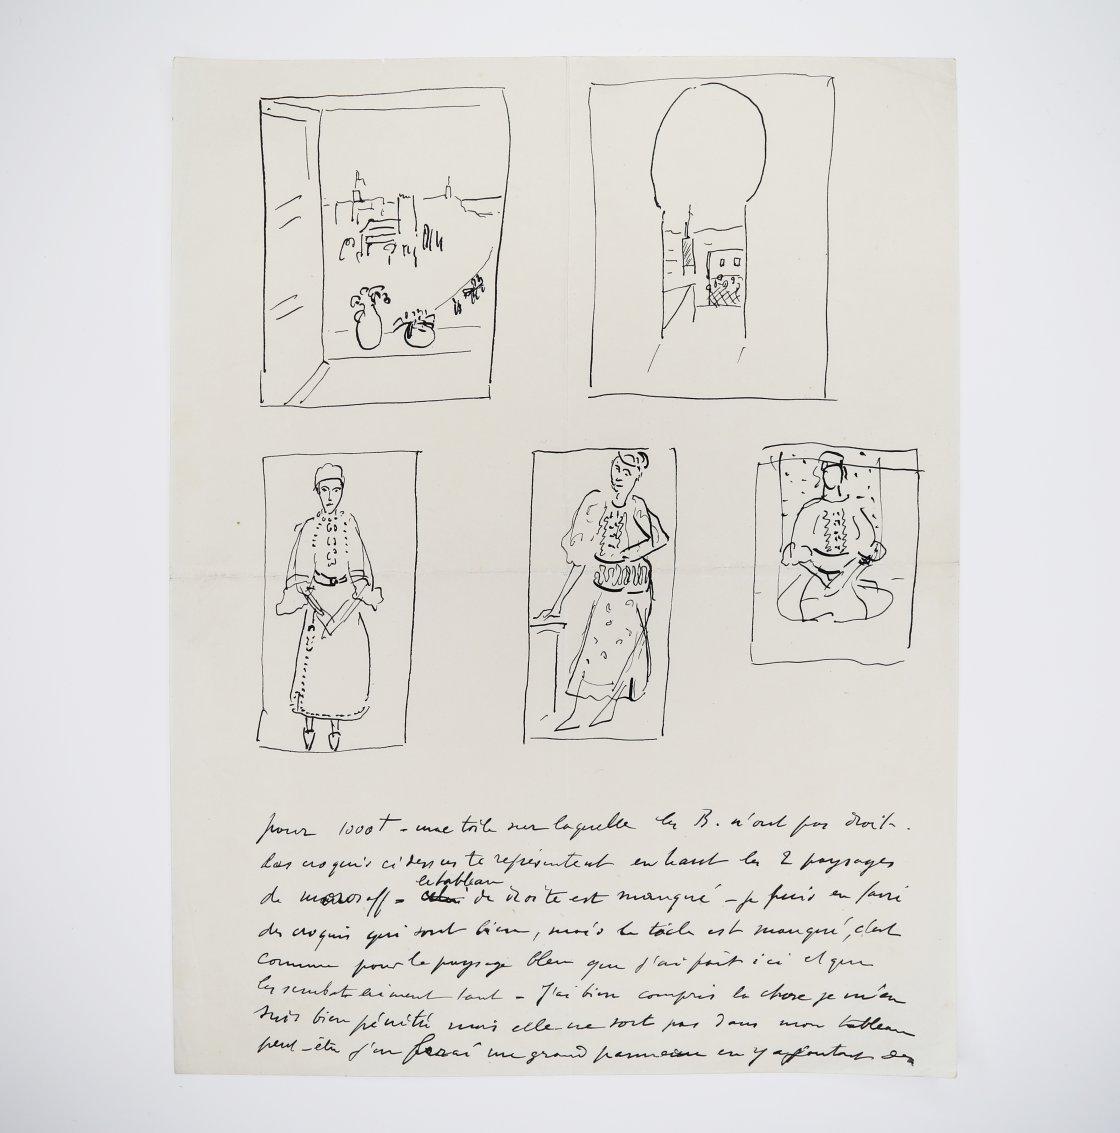 pour 1000f - une toile sur laquelle les B. n'ont pas droit.
Les croquis ci dessus te représentent en haut les 2 paysages
de moroseff - le tableau de droite est manqué - je puis en faire
des croquis qui sont bien, mais la toile est manqué, c'est
comme pour le paysage bleu que j'ai fait ici et que
les aiment tant - J'ai bien compris la chose je m'en
suis bien pénétré mais elle ne sort pas dans mon tableau
peut-être j'en ferai un grand panneau en y ajoutant des